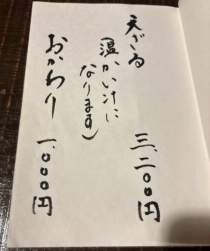 天ざる
(温かい汁に
なります)
三、二〇〇円
おかわり 一、〇〇〇円